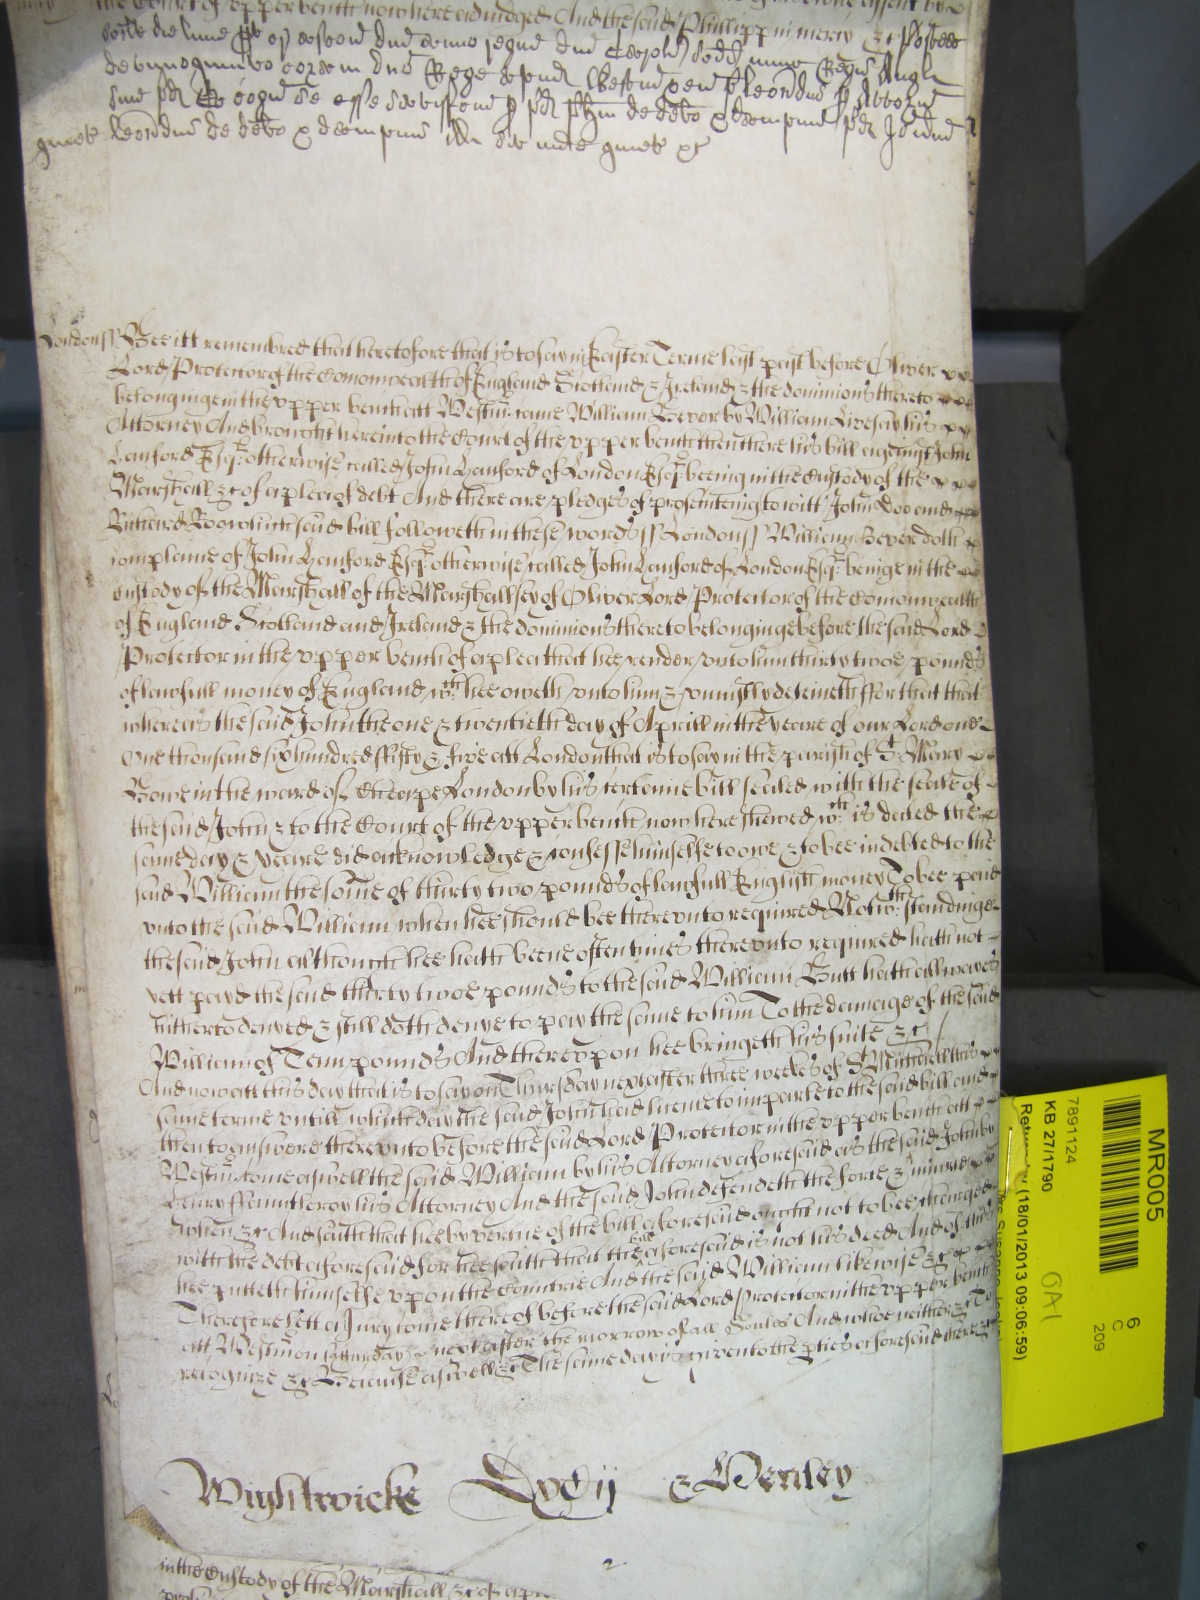 the Court of upper bench now here adiudged And the said Phillipp in mercy &c Postea
Londonss Bee itt remembred that heretofore that is to say in Easter Terme last past before Oliver
Lord Protector of the Comonwealth of England Scotland & Ireland & the dominions thereto
belonginge in the upper bench att Westmr. came William Bever by William Livesay his
Attorney And brought here into the Court of the upper bench then there his bill against John
Hanford Esqr. otherwise called John Hanford of London Esqr. beeing in the Custody of the
Marshall &c of a plea of debt And there are pledges of prosecuting to witt John Doo and
Richard Roo which said bill followeth in these wordsss Londonss William Bever doth
complaine of John Hanford Esqr. otherwise called John Hanford of London Esqr. beinge in the
custody of the Marshall of the Marshallsey of Oliver Lord Protector of the Comonwealth
of England Scotland and Ireland & the dominions thereto belonginge before the said Lord
Protector in the upper bench of a plea that hee render unto him thirty twoe pounds
of lawfull money of England wch. hee oweth unto him & uniustly deteineth ffor that that
whereas the said John the one & twentieth day of Aprill in the yeare of our Lord one
One thousand six hundred ffifty & five att London that is to say in the parish of St. Mary
Bowe in the ward of Cheape London by his certeine bill sealed with the seale of
the said John & to the Court of the upper bench now here shewed wch. is dated the
same day & yeare did acknowledge & confesse himselfe to owe & to bee indebted to the
said William the some of thirty two pounds of lawfull English money To bee paid
unto the said William when hee should bee thereunto required Notwth. standinge
the said John although hee hath beene oftentimes thereunto required hath not
yett payd the said thirty twoe pounds to the said William Butt hath allwayes
hitherto denyed & still doth denye to pay the same to him To the damage of the said
William of Tenn pounds And thereupon hee bringeth his suite &c
And now att this day that is to say on Thursday next after three weekes of St. Michael this
same terme untill which day the said John had licence to imparle to the said bill and
then to answere thereunto before the said Lord Protector in the upper bench att
Westmr. come aswell the said William by his Attorney aforesaid as the said John by
Henry ffauntleroy his Attorney And the said John defendeth the force & iniurie
when &c And saith that hee by vertue of the bill aforesaid ought not to bee charged
with the debt aforesaid for hee saith that the bill aforesaid is not his deed And of this
hee putteth himselfe upon the Countrie And the said William likewise &c
Therefore lett a Jury come thereof before the said Lord Protector in the upper bench
att Westmon Satturday next after the morrow of all Soules And whoe neither &c To
recognize &c Because aswell &c The same day is given to the pties aforesaid there &c
Wightwicke Dodij & Wenley
2
in the Custody of the Marshall &c of a
MR005
6
C
209
7891124
KB 27/1790
Return by (18/01/2013 09:06:59)